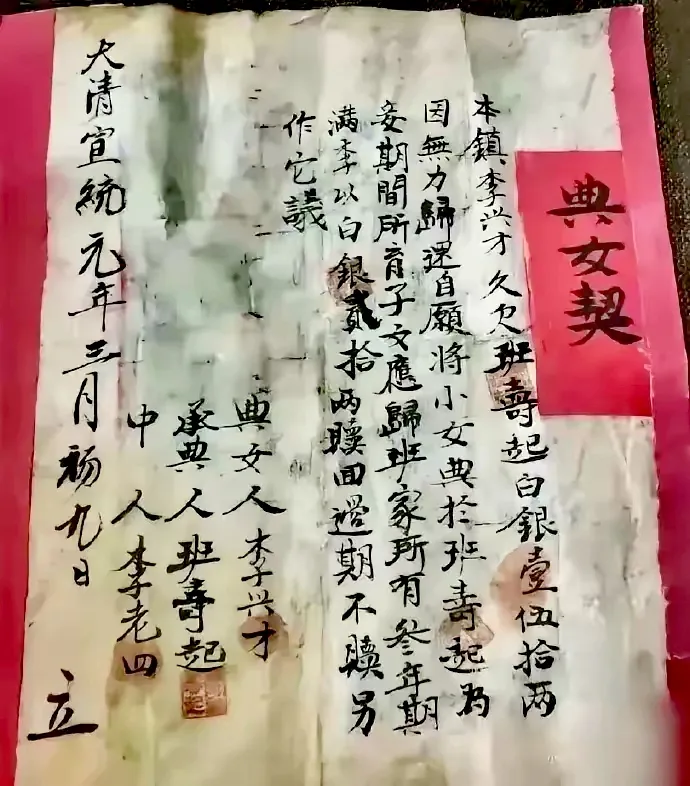 典女契
本鎮李兴才久欠班壽起白銀壹伍拾两
因無力歸還自願将小女典於班壽起為
妾期間所育子女應歸班家所有叁年期
满李以白銀貳拾两贖回過期不贖另
作它議
典女人李兴才
承典人班壽起
中人李老四
大清宣統元年三月初九日 立